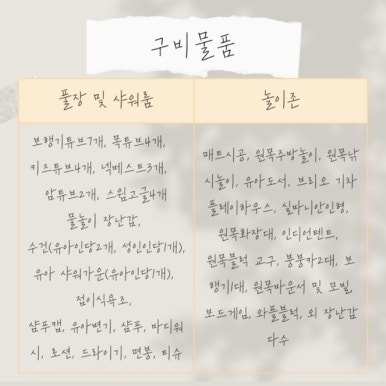 구비물품
풀장 및 샤워룸
보행기튜브7개, 목튜브4개,
키즈튜브4개, 넥베스트3개,
암튜브2개, 스윔고글4개
물놀이 장난감,
수건(유아인당2개, 성인인당1개),
유아 샤워가운(유아인당1개),
접이식욕조,
샴푸캡, 유아변기, 샴푸, 바디워
시, 로션, 드라이기, 면봉, 티슈
놀이존
매트시공, 원목주방놀이, 원목낚
시놀이, 유아도서, 브리오 기차
플레이하우스, 실바니안인형,
원목화장대, 인디언텐트,
원목블럭 교구, 붕붕카2대, 보
행기1대, 원목바운서 및 모빌,
보드게임, 와플블럭, 외 장난감
다수